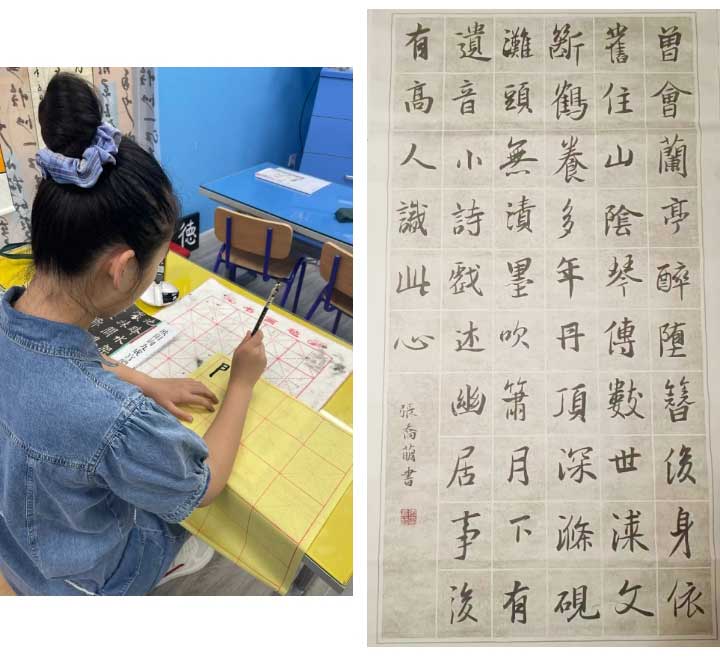 曾會蘭亭醉墮簪後身依
舊住山陰琴傳數世漆文
斷鶴養多年丹頂深滌硯
灘頭無漬墨吹簫月下有
遺音小詩戲述幽居事後
有高人識此心
張喬萠書
德